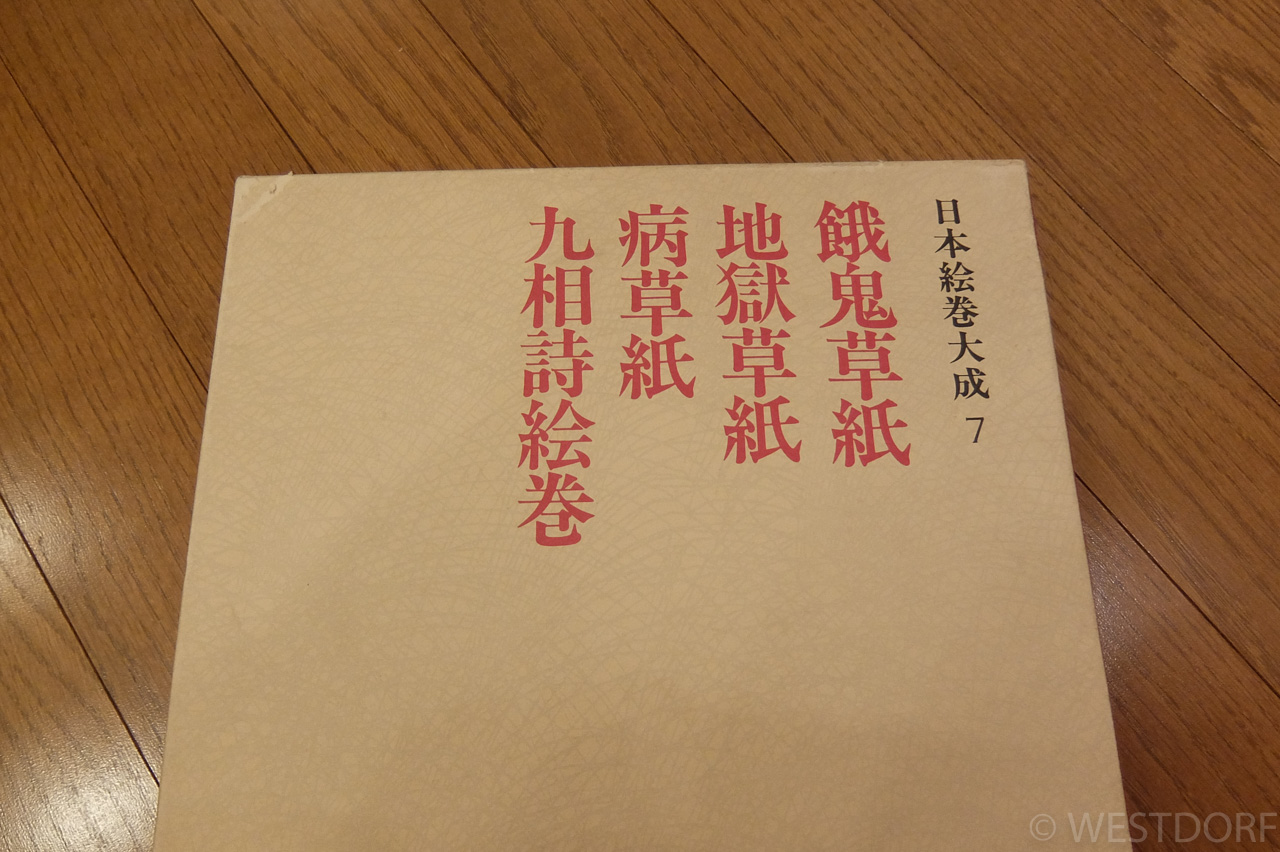 日本絵巻大成 7
餓鬼草紙
地獄草紙
病草紙
九相詩絵巻
© WESTDORF